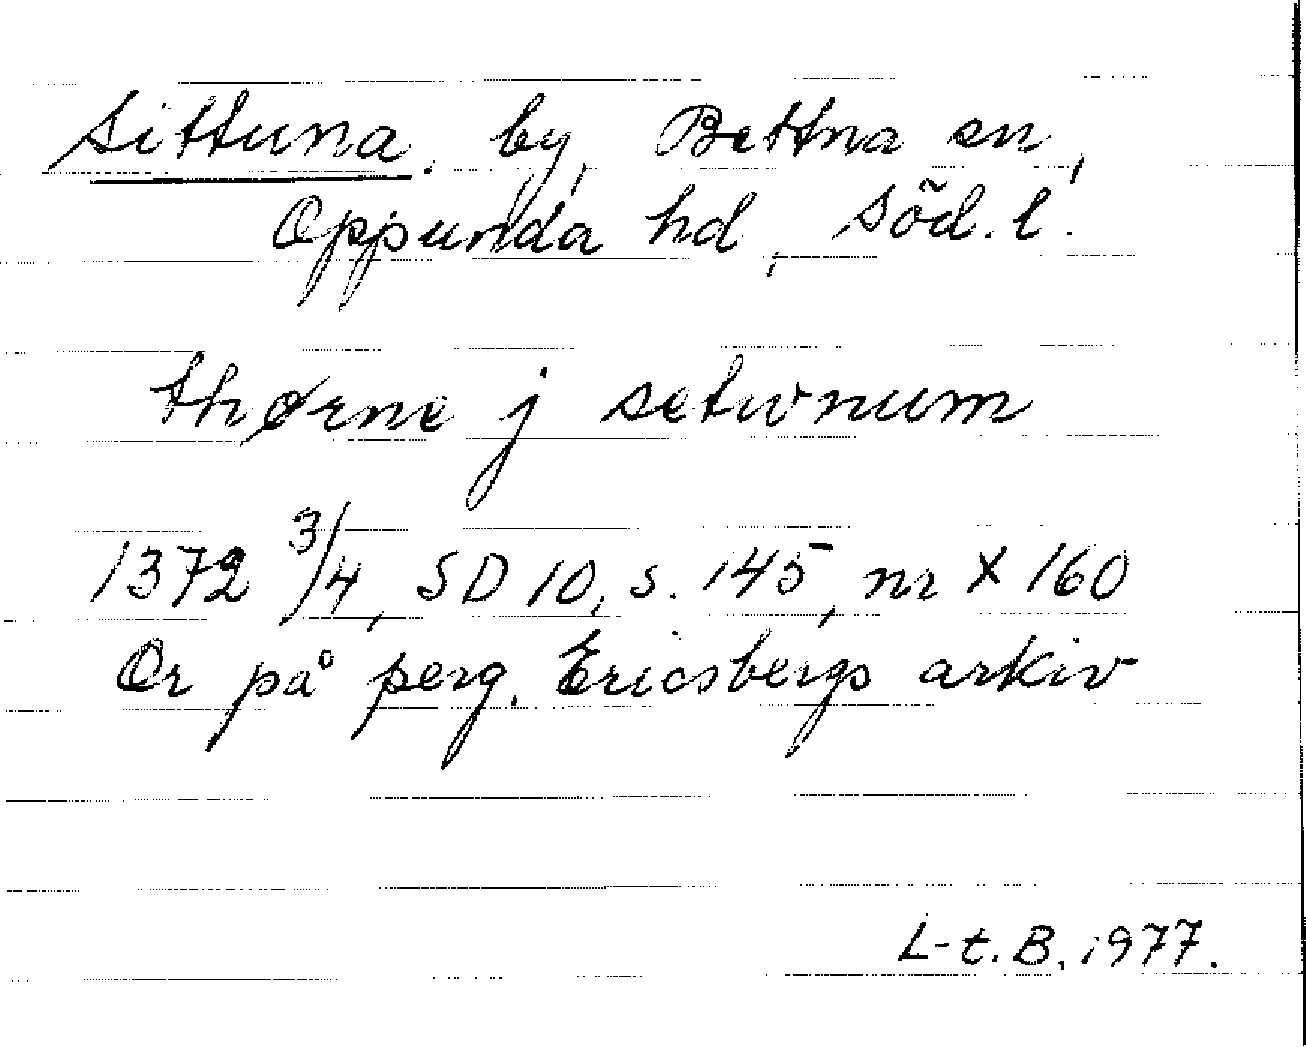 Sittuna. by, Bettna sn,
Oppunda hd, Söd. l.
thørne j setwnum
1372 3/4, SD 10, s. 145, nr X 160
Or på perg. Ericsbergs arkiv
L-t. B. 1977.